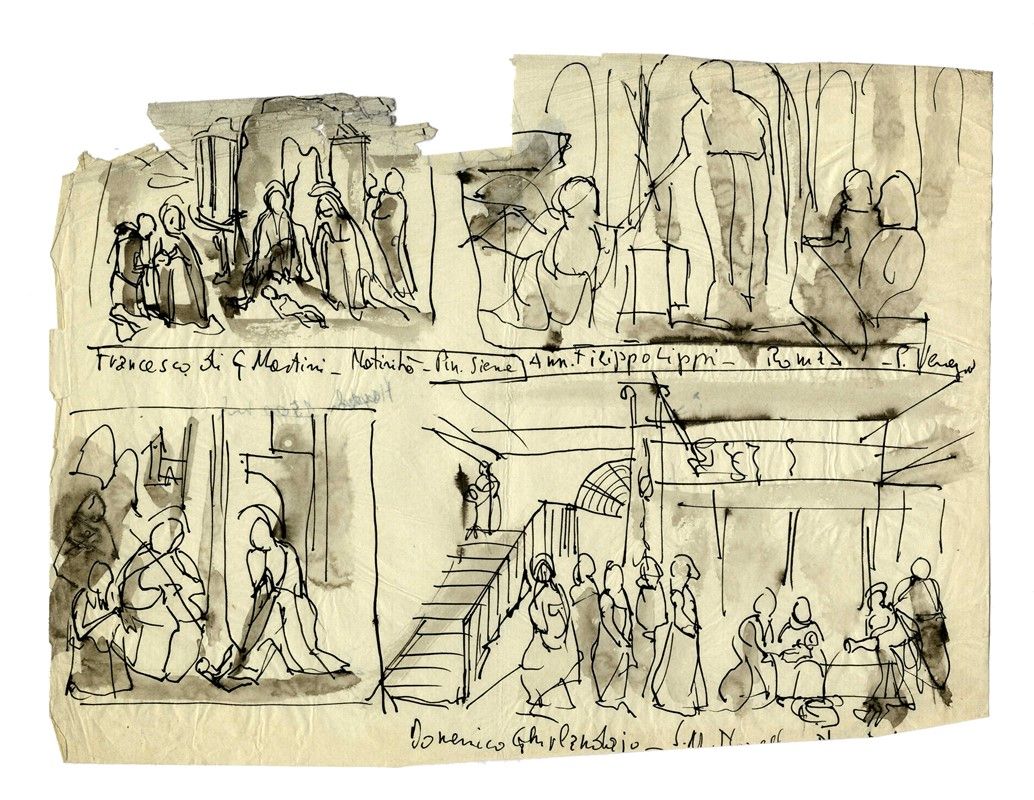 Francesco di G Martini - Natività - Pin. Siena
Ann. Filippo Lippi - Roma - P. Venezia
Domenico Ghirlandajo - S.M. Novella